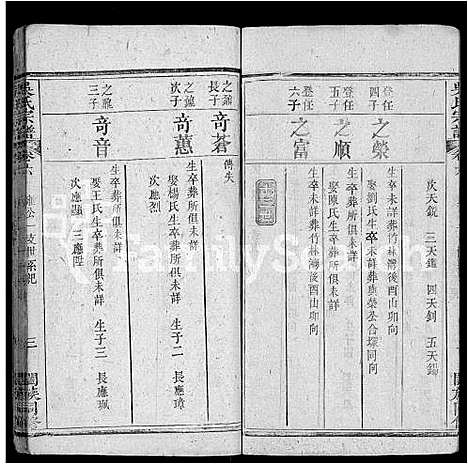 吳氏宗譜
卷六
次天銳 三天鑑 四天釗 五天錫
登任
四子
之榮
生卒未詳葬竹林灣後酉山卯向
娶劉氏生卒未詳葬與榮公合塚同向
登任
五子
之順
生卒葬所俱未詳
娶陳氏生卒葬所俱未詳
登任
六子
之富
生卒未詳葬竹林灣後酉山卯向
之鼐
長子
奇蒼
傳失
之鼐
次子
奇蕙
生卒葬所俱未詳
娶楊氏生卒葬所俱未詳 生子二 長應璋
次應烈
之鼐
三子
奇音
生卒葬所俱未詳
娶王氏生卒葬所俱未詳 生子三 長應珮
次應顯 三應陞
吳氏宗譜
卷六
三
闔族同修
FamilySearch